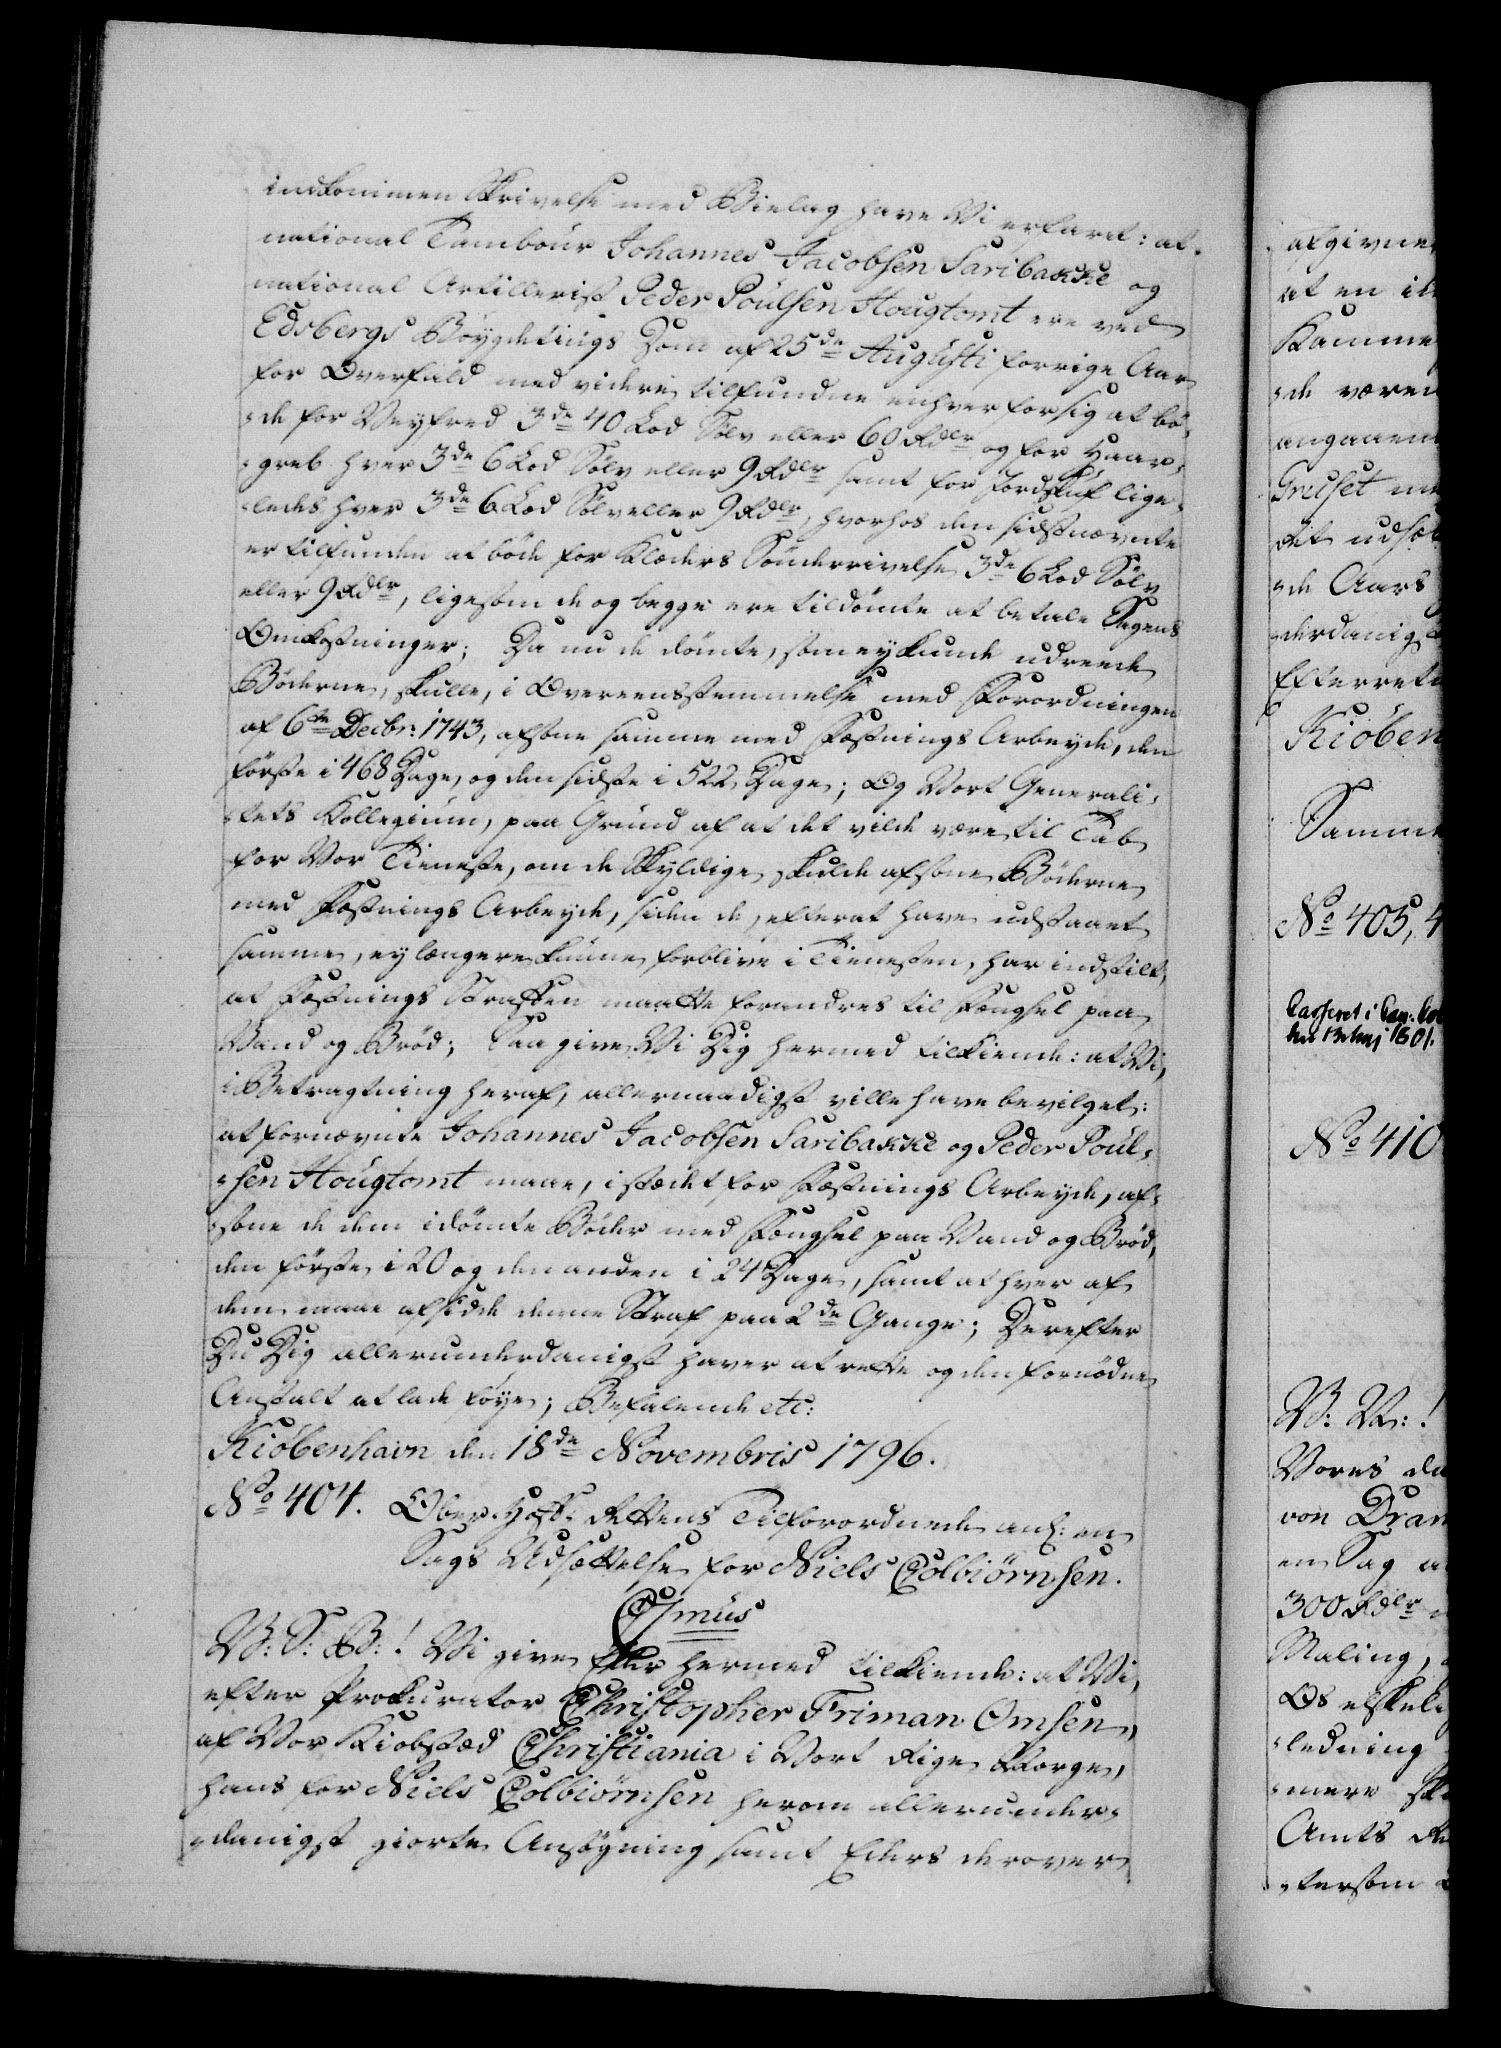 indkommen Skrivelse med Bielag have Vi erfaret: at
national Tambour Johannes Jacobsen Saribakke og
national Artillerist Peder Poulsen Hougtomt ere ved
Edsbergs Böygdetings Dom af 25de Augusti forrige Aar
for Overfald med videre tilfundne enhver for sig at bö-
-de for Veyfred 3de 40 Lod Sölv eller 60 Rdlr og for Haar-
-greb hver 3de 6 Lod Sölv eller 9 Rdlr samt for Jordskuf lige-
-ledes hver 3de 6 Lod Sölv eller 9 Rdlr, hvorhos den sidstnævnte
er tilfunden at böde for Klæders Sönderrivelse 3de 6 Lod Sölv
eller 9 Rdlr, ligesom de og begge ere tildömte at betale Sagens
Omkostninger; Da nu de dömte, som ey kunde udreede
Böderne, skulle, i Overeensstemmelse med Forordningen
af 6te Decbr: 1743, afsone samme med Fæstnings Arbeyde, den
förste i 468 Dage, og den sidste i 522 Dage; Og Vort Generali-
-tets Kollegium, paa Grund af at det vilde være til Tab
for Vor Tieneste, om de Skyldige skulde afsone Böderne
med Fæstnings Arbeyde, siden de, efterat have udstaaet
samme, ey længere kunne forblive i Tienesten, har indstilt,
at Fæstnings Straffen maatte forandres til Fængsel paa
Vand og Bröd; Saa give Vi Dig hermed tilkiende: at Vi,
i Betragtning heraf, allernaadigst ville have bevilget:
at fornævnte Johannes Jacobsen Saribakke og Peder Poul-
-sen Hougtomt maae, i stædet for Fæstnings Arbeyde, af-
-sone de dem idömte Böder med Fængsel paa Vand og Bröd,
den förste i 20 og den anden i 24 Dage, samt at hver af
dem maae afsidde denne Straf paa 2de Gange; Derefter
Du Dig allerunderdanigst haver at rette og den fornödne
Anstalt at lade föye; Befalende etc:
Kiöbenhavn den 18de Novembris 1796.
No 404. Ober-Hof-Rettens Tilforordnede anl: en
Sags Udsættelse for Niels Colbiörnsen.
Csmus
V: S: B:! Vi give Eder hermed tilkiende: at Vi,
efter Prokurator Christopher Friman Omsen,
af Vor Kiöbstæd Christiania i Vort Rige Norge,
hans for Niels Colbiörnsen herom allerunder-
-danigst giorte Ansögning samt Eders derover
afgivne
at en
Kamme
-de væren
angaaen
Gruset
det udsæt
-de Aars
-derdanigst
Efterret
Kiöben
Samme
No 405, 4
No 410
V: V:!
Vores
von Dram
en Sag
300 Rdlr
Maling,
Os elskeli
-ledning
-mere
Amts
-tersom